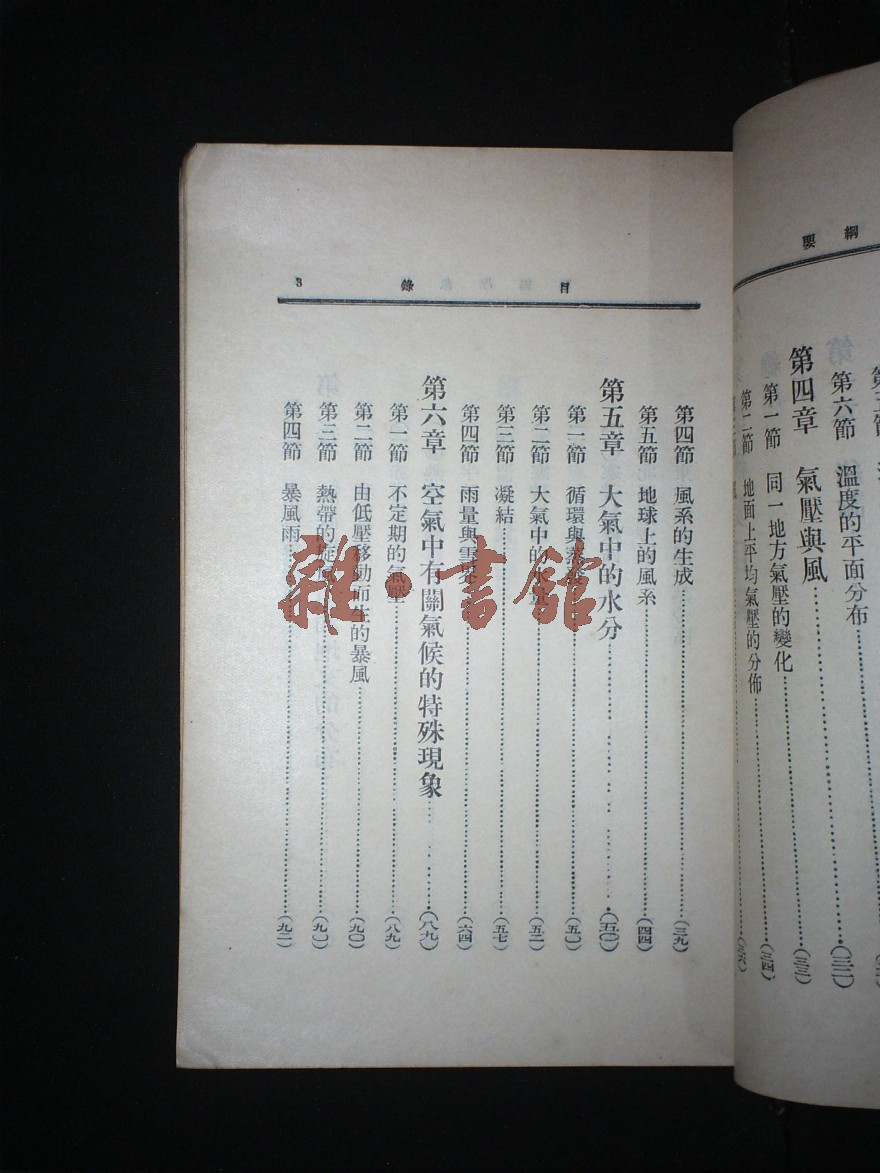 綱 要
第六節 溫度的平面分布……(三二)
第四章 氣壓與風……(三三)
第一節 同一地方氣壓的變化……(三四)
第二節 地面上平均氣壓的分佈……(三六)
目 錄 3
第四節 風系的生成……(三九)
第五節 地球上的風系……(四四)
第五章 大氣中的水分……(五〇)
第一節 循環與蒸發……(五〇)
第二節 大氣中的水量……(五二)
第三節 凝結……(五七)
第四節 雨量與雪量……(六四)
第六章 空氣中有關氣候的特殊現象……(八九)
第一節 不定期的氣壓……(八九)
第二節 由低壓移動而生的暴風……(九〇)
第三節 熱帶的旋風……(九一)
第四節 暴風雨……(九二)
雜·書館